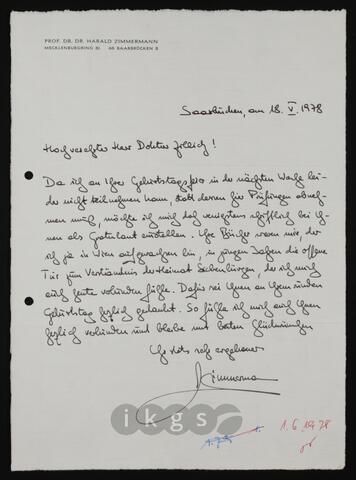 PROF. DR. DR. HARALD ZIMMERMANN
MECKLENBURGRING 31 66 SAARBRÜCKEN 3
Saarbrücken, am 18. V. 1978
Hochverehrter Herr Doktor Zillich!
Da ich an Ihrer Geburtstagsfeier in der nächten Woche lei-
der nicht teilnehmen kann, statt dessen hier Prüfungen abneh-
men muß, möchte ich mich doch wenigstens schriftlich bei Ih-
nen als Gratulant einstellen. Ihre Bücher waren mir, der
ich ja in Wien aufgewachsen bin, in jungen Jahren die offene
Tür zum Verständnis der Heimat Siebenbürgen, der ich mich
auch heute verbunden fühle. Dafür sei Ihnen an Ihrem runden
Geburtstag herzlich gedankt. So fühle ich mich auch Ihnen
herzlich verbunden und bleibe mit besten Glückwünschen
Ihr stets sehr ergebener
Zimmermann
ikgs
1.6.1978